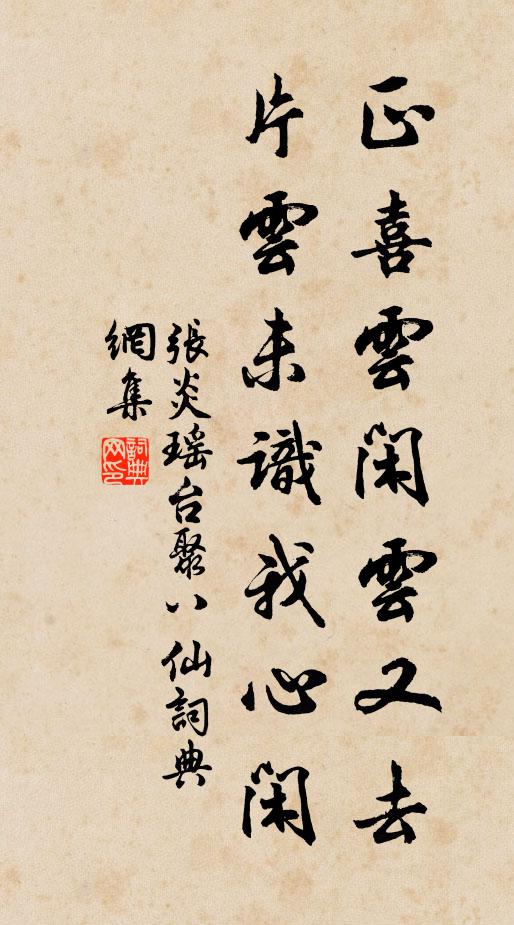 正喜雲閑雲又去
片雲未識我心閑
張炎瑶台聚八仙詞典
網集
詞典
网印